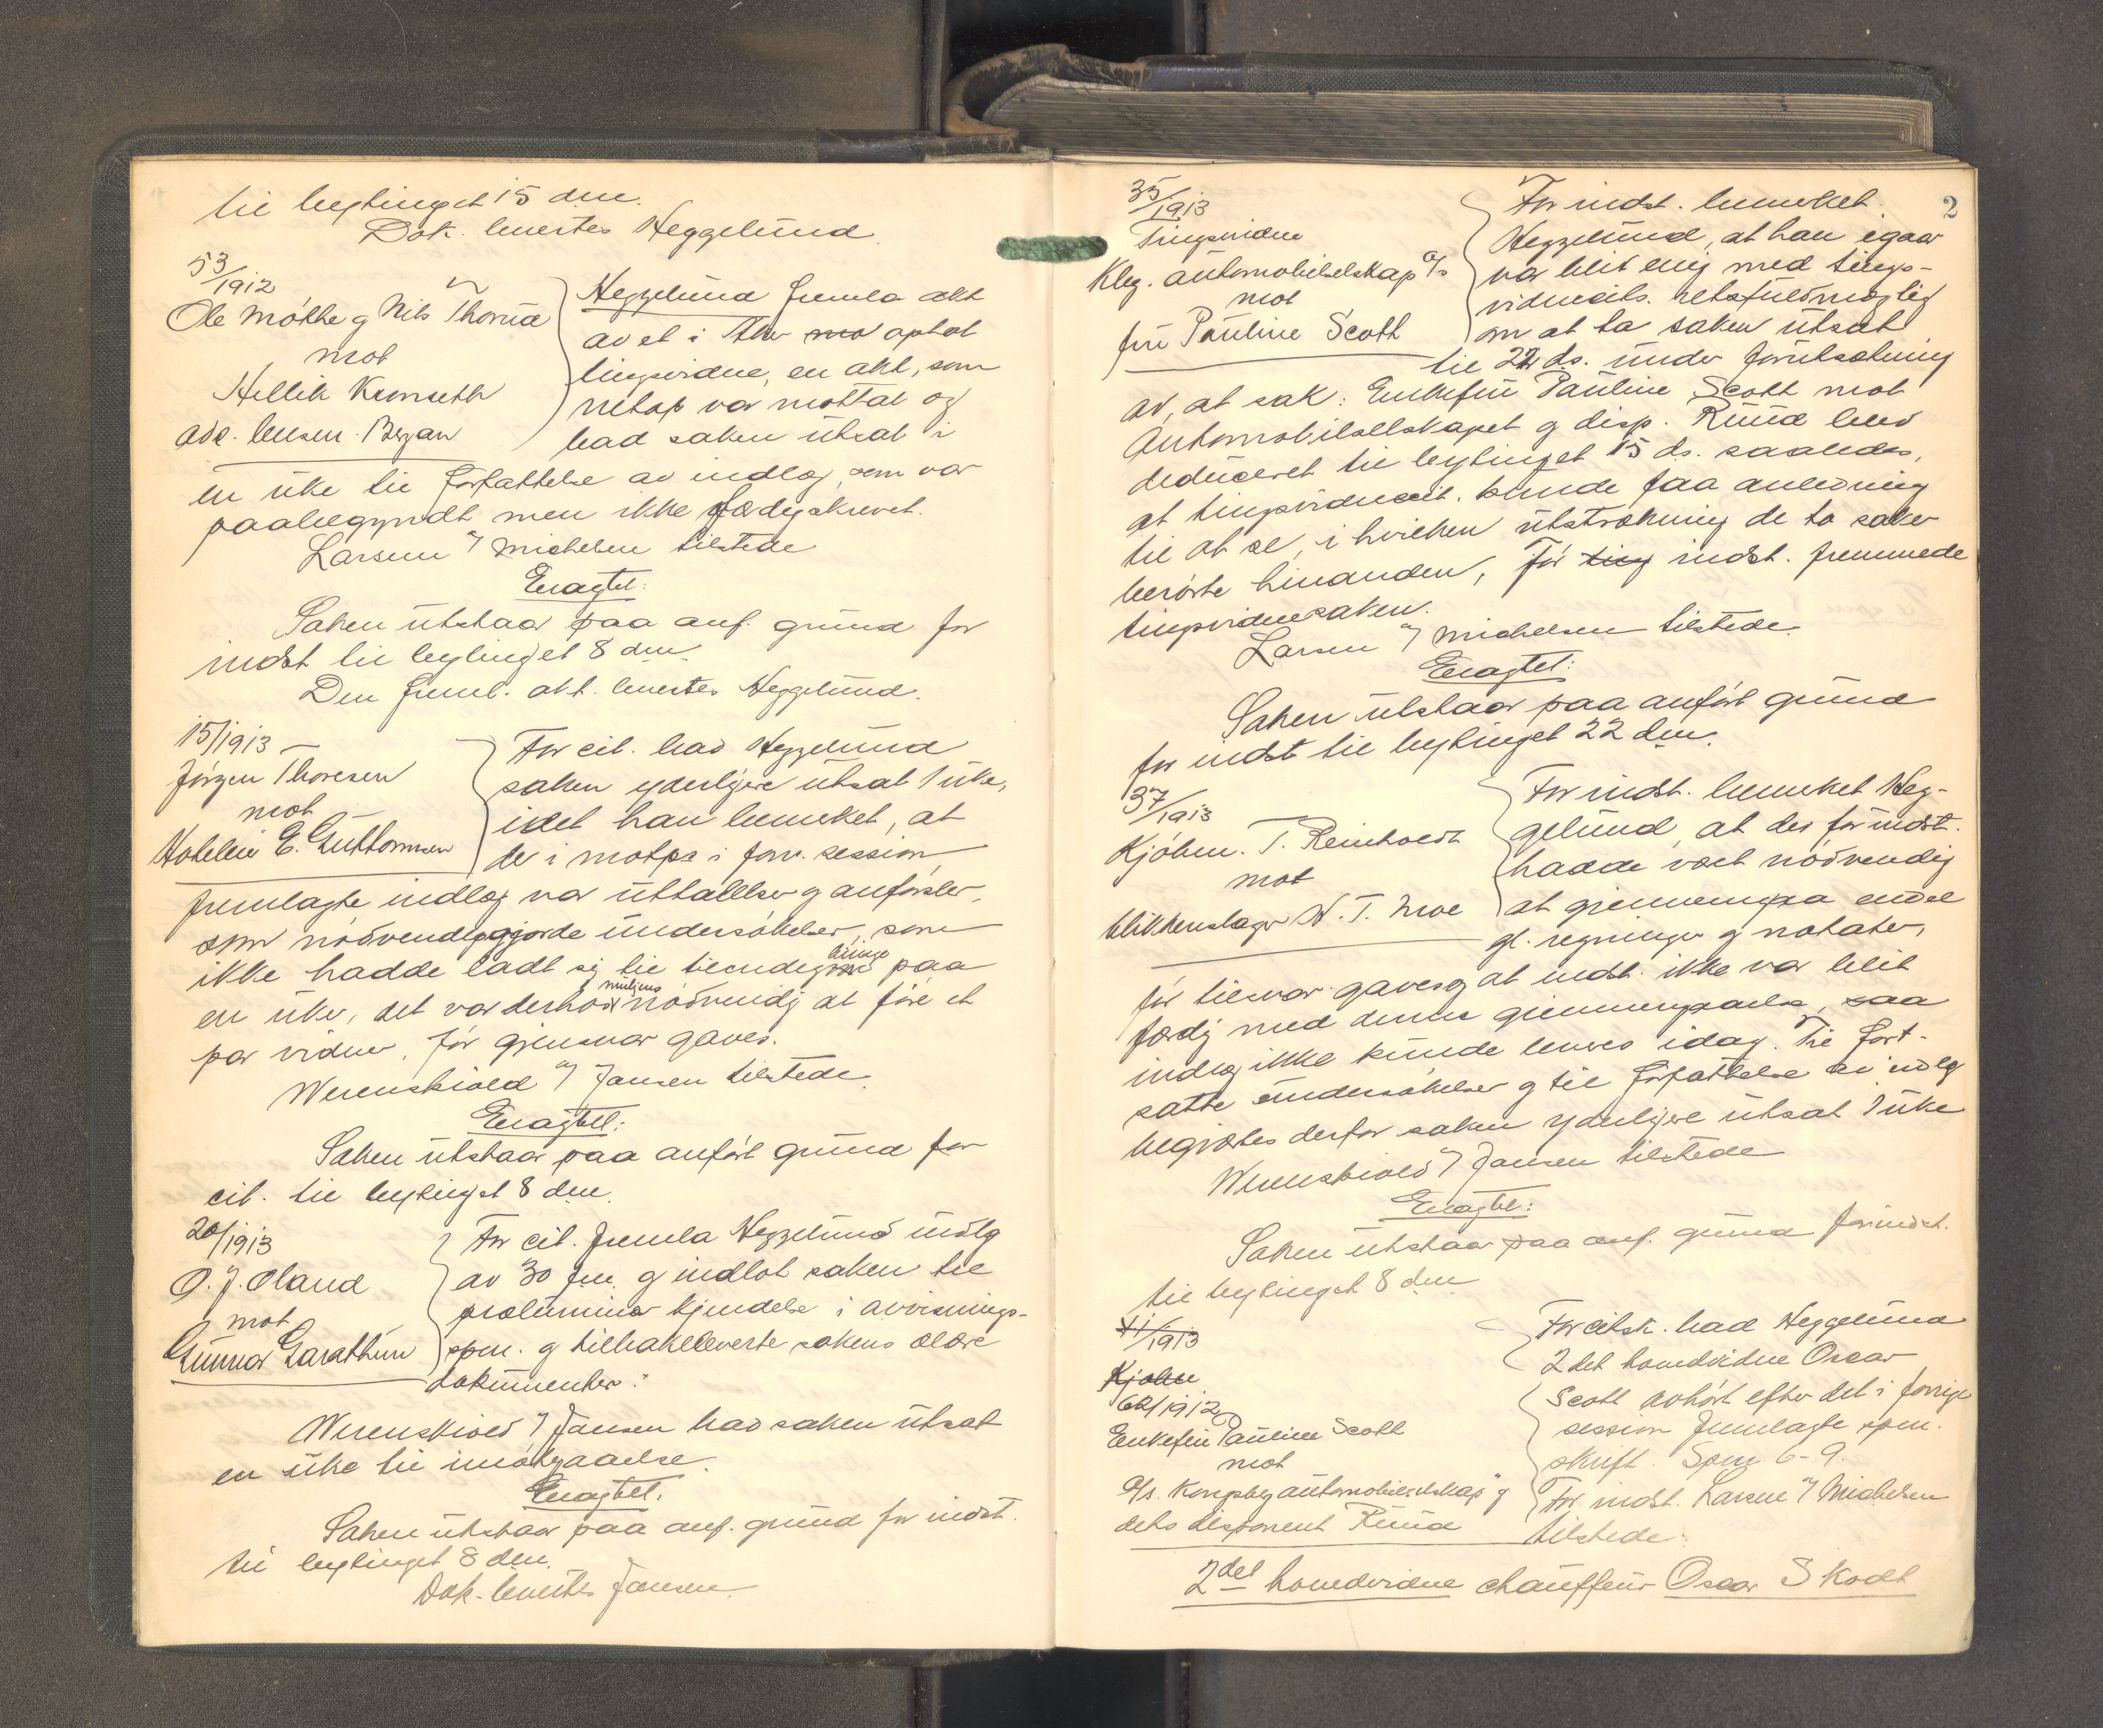 til bytinget 15 dm.
Dok. levertes Heggelund.
53/1912
Ole Møkke og Nils Thorud
mot
Hellik Kronseth
adv. Censen Bryan
Heggelund fremla akt
av et i Thv mod optat
tingsvidne, en akt, som
netop var mottat og
bad saken utsat i
en uke til forfattelse av indlæg, som var
paabegyndt men ikke færdigskrevet.
Larsen v/ Michelsen tilstede
Eragtet:
Saken utstaar paa anf. grund for
indst til bytinget 8 dm.
Den freml. akt. levertes Heggelund.
15/1913
Jørgen Thoresen
mot
Hoteleier E. Guttormsen
For cit. bad Heggelund
saken yderligere utsat 1 uke,
idet han bemerket, at
der i motps i forr. session
fremlagte indlæg var uttalelser og anførsler,
som nødvendiggjorde undersøkelser, som
ikke hadde ladt sig til tilendebringe paa
en uke, det var derhos muligens nødvendig at føre et
par vidner, før gjensvar gaves.
Werenskiold v/ Jansen tilstede.
Eragtet:
Saken utstaar paa anført grund for
cit. til bytinget 8 dm.
20/1913
O. J. Oland
mot
Gunnar Garathun
For cit. fremla Heggelund indlg
av 30 fm. og indlot saken til
præliminær kjendelse i avvisnings-
spm. og tilbakeleverte sakens ældre
dokumenter.
Werenskiold v/ Jansen bad saken utsat
en uke til imøtegaaelse.
Eragtet:
Saken utstaar paa anf. grund for indst.
til bytinget 8 dm.
Dok. levertes Jansen.
2
35/1913
Tingsvidne
Kbg. automobilselskap a/s
mot
fru Pauline Scott
For indst. bemerket
Heggelund, at han igaar
var blit enig med tings-
vidnecits. retsfuldmægtig
om at ta saken utsat
til 22 ds. under forutsætning
av, at sak: Enkefru Pauline Scott mot
Automobilselskapet og disp. Ruud blev
deduceret til bytinget 15 ds. saaledes,
at tingsvidnecit. kunde faa anledning
til at se, i hvilken utstrækning de to saker
berørte hinanden, før ting indst. fremmede
tingsvidnesaken.
Larsen v/ Michelsen tilstede.
Eragtet:
Saken utstaar paa anført grund
for indst til bytinget 22 dm.
37/1913
Kjøbm. T. Reinholdt
mot
blikkenslager N. T. Moe
For indst. bemerket Heg-
gelund, at det for indst.
hadde vært nødvendig
at gjennemgaa endel
gl. regninger og notater,
før tilsvar gaves og at indst. ikke var blit
færdig med denne gjennemgaaelse, saa
indlæg ikke kunde leveres idag. Til fort-
satte undersøkelser og til forfattelse av indlg
begjærtes derfor saken yderligere utsat 1 uke
Werenskiold v/ Jansen tilstede
Eragtet:
Saken utstaar paa anf. grund for indst.
til bytinget 8 dm
41/1913
Kjøbm
62/1912
Enkefru Pauline Scott
mot
A/s. Kongsberg automobilselskap og
dets disponent Ruud
For citsk. bad Heggelund
2det hovedvidne Oscar
Scott avhørt efter det i forrige
session fremlagte spm.
skrift. Spm 6-9.
For indst. Larsen v/ Michelsen
tilstede.
2det hovedvidne chauffeur Oscar Skodt